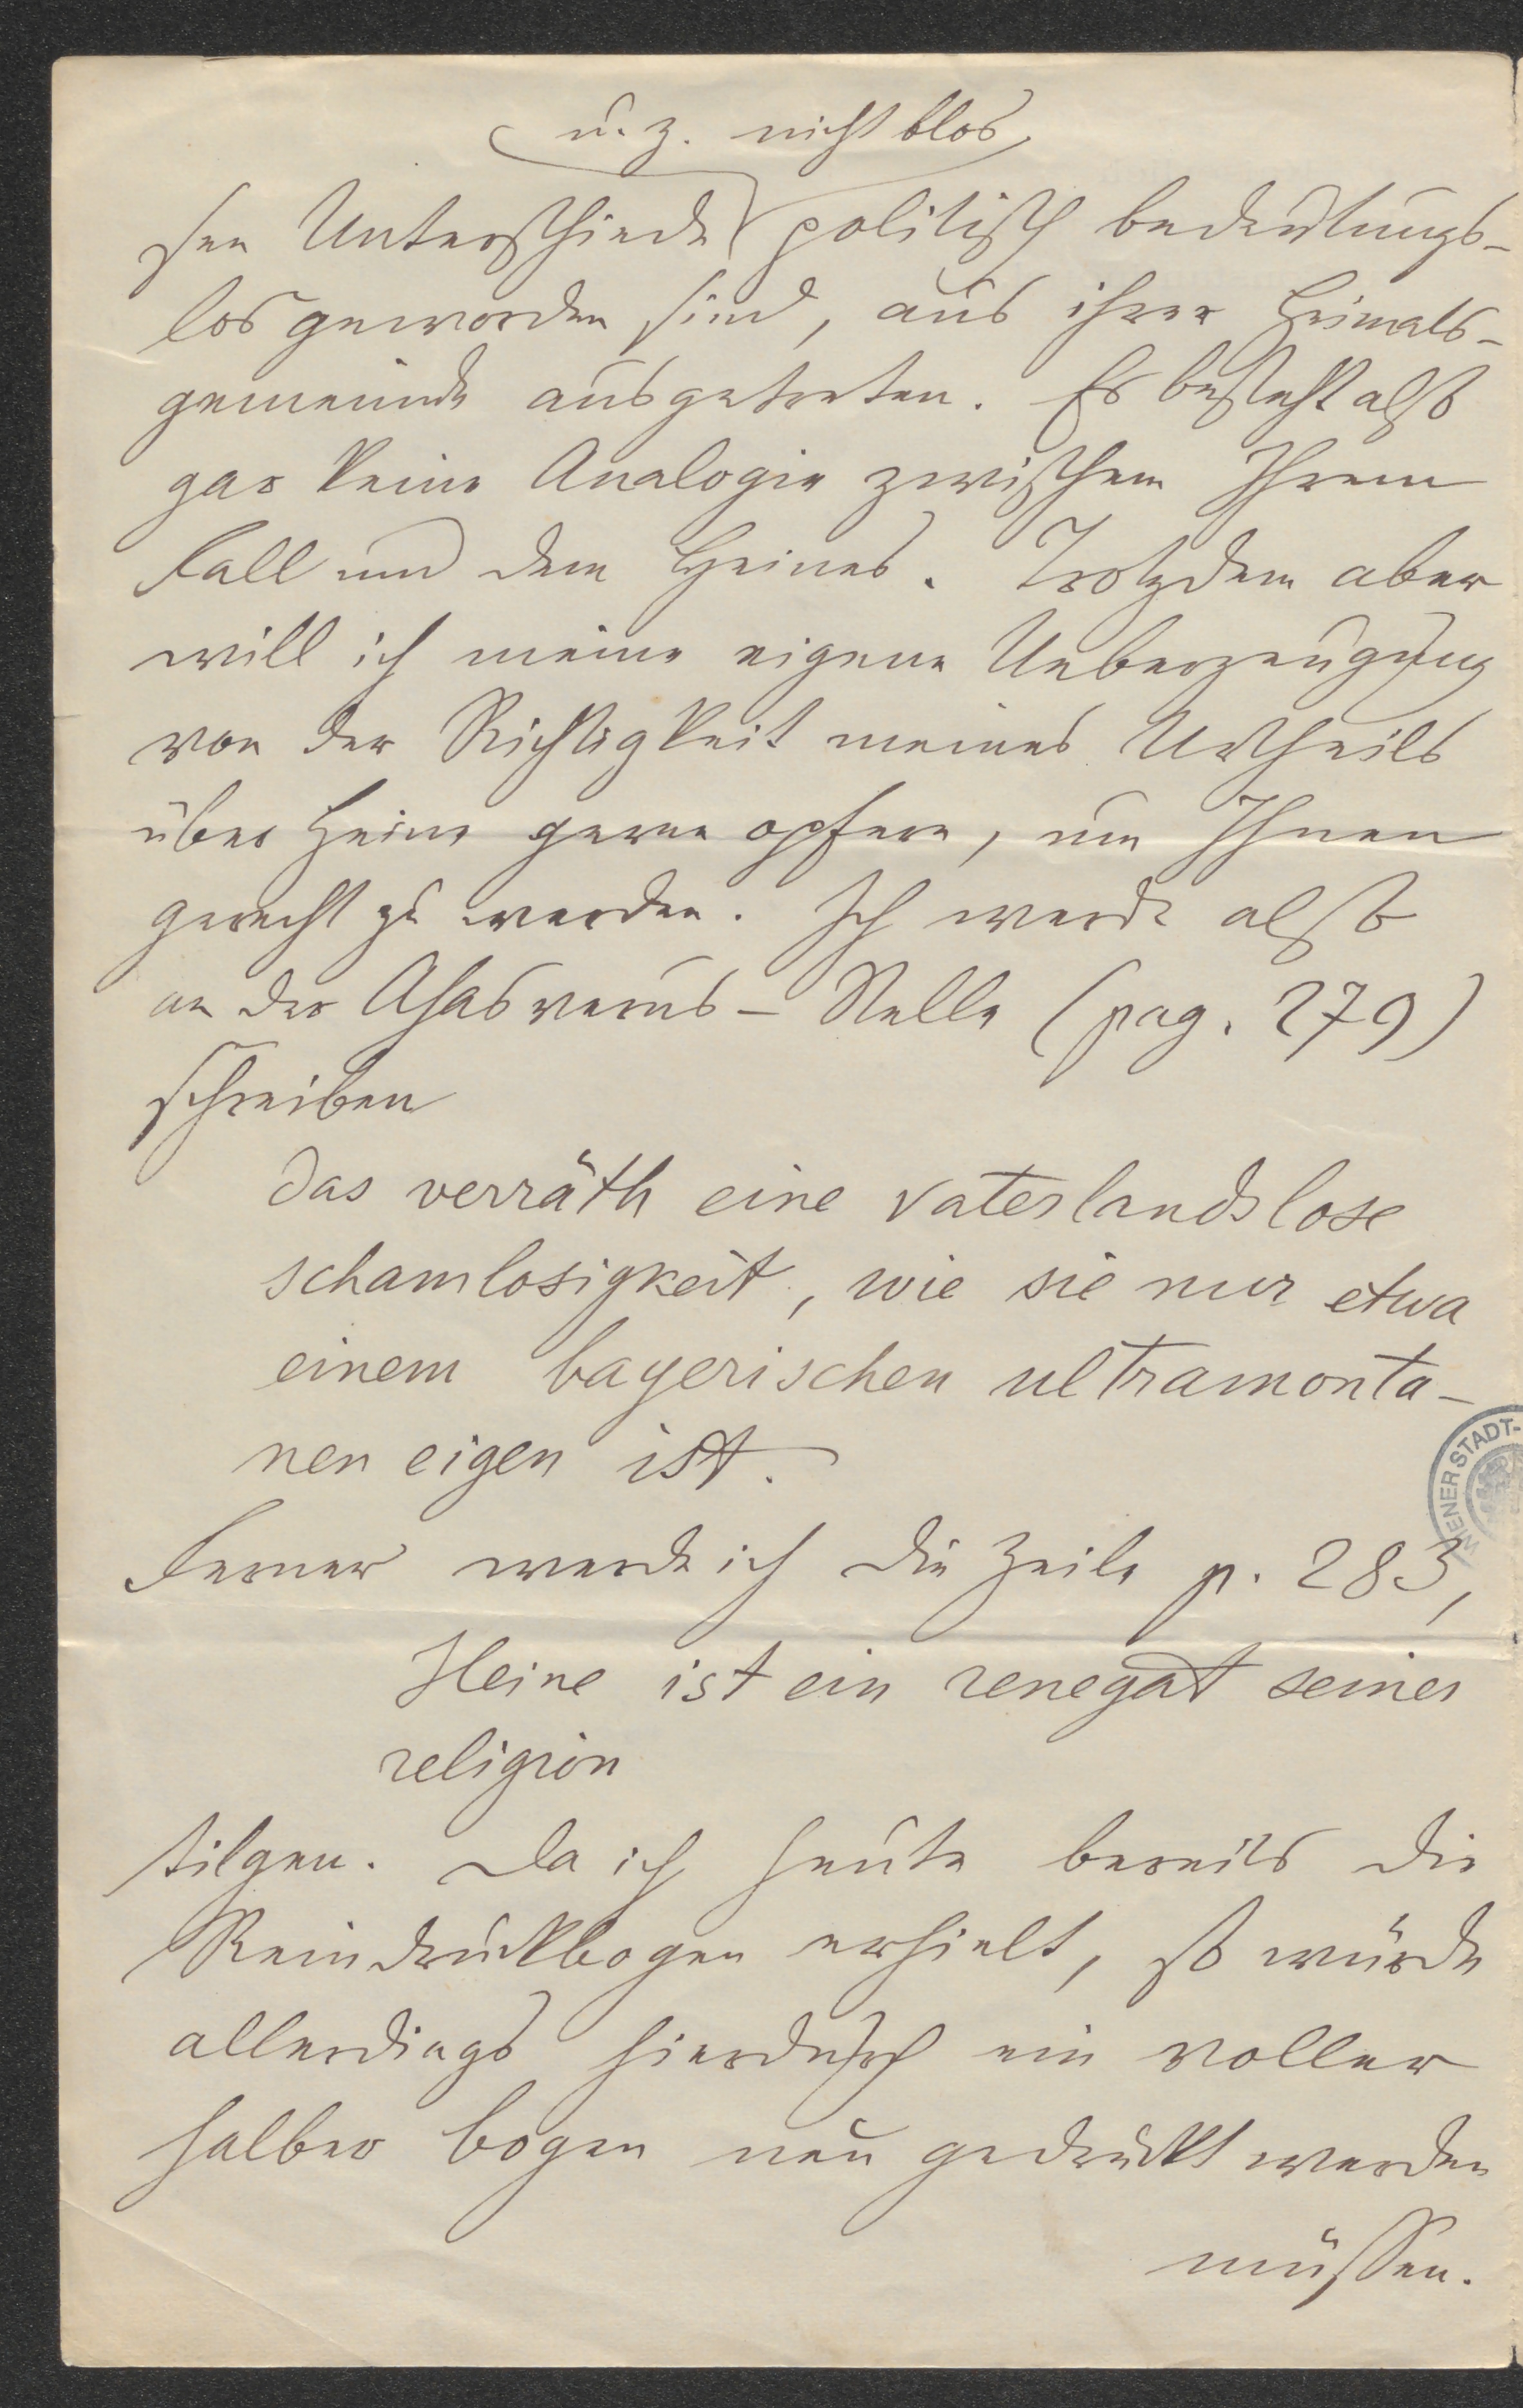 u. z. nicht blos
sen Unterschiede politisch bedeutungs-
los geworden sind, aus ihrer Heimats-
gemeinde ausgetreten. Es besteht also
gar keine Analogie zwischen Ihrem
Fall und dem Heines. Trotzdem aber
will ich meine eigene Ueberzeugung
von der Richtigkeit meines Urtheils
über Heine gerne opfern, um Ihnen
gerecht zu werden. Ich werde also
an der Ahasverus-Stelle (pag. 279)
schreiben
das verräth eine vaterlandslose
schamlosigkeit, wie sie nur etwa
einem bayerischen ultramonta-
nen eigen ist.
Ferner werde ich die Zeile p. 283,
Heine ist ein renegat seiner
religion
tilgen. Da ich heute bereits die
Reindruckbogen erhielt, so würde
allerdings hierdurch ein voller
halber bogen neu gedruckt werden
müssen.
WIENER STADT-